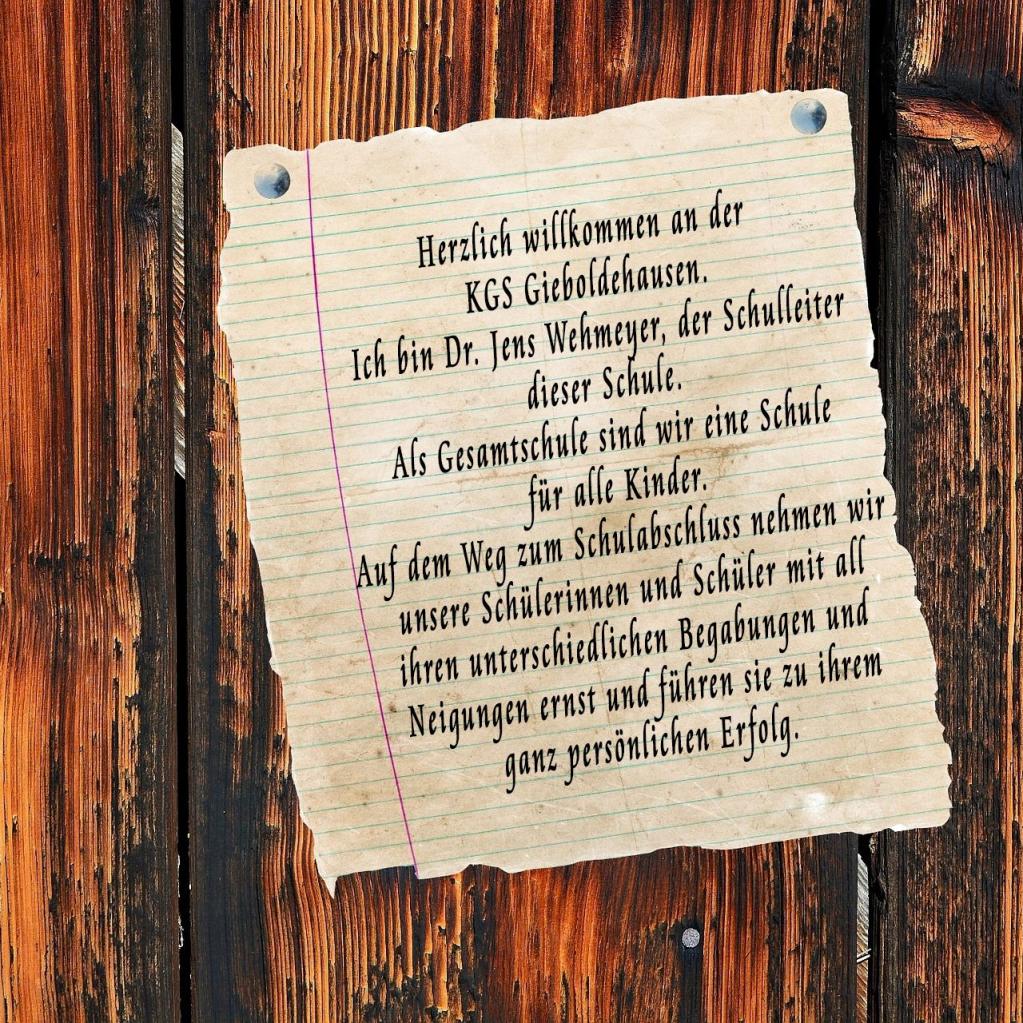 Herzlich willkommen an der
KGS Gieboldehausen.
Ich bin Dr. Jens Wehmeyer, der Schulleiter
dieser Schule.
Als Gesamtschule sind wir eine Schule
für alle Kinder.
Auf dem Weg zum Schulabschluss nehmen wir
unsere Schülerinnen und Schüler mit all
ihren unterschiedlichen Begabungen und
Neigungen ernst und führen sie zu ihrem
ganz persönlichen Erfolg.